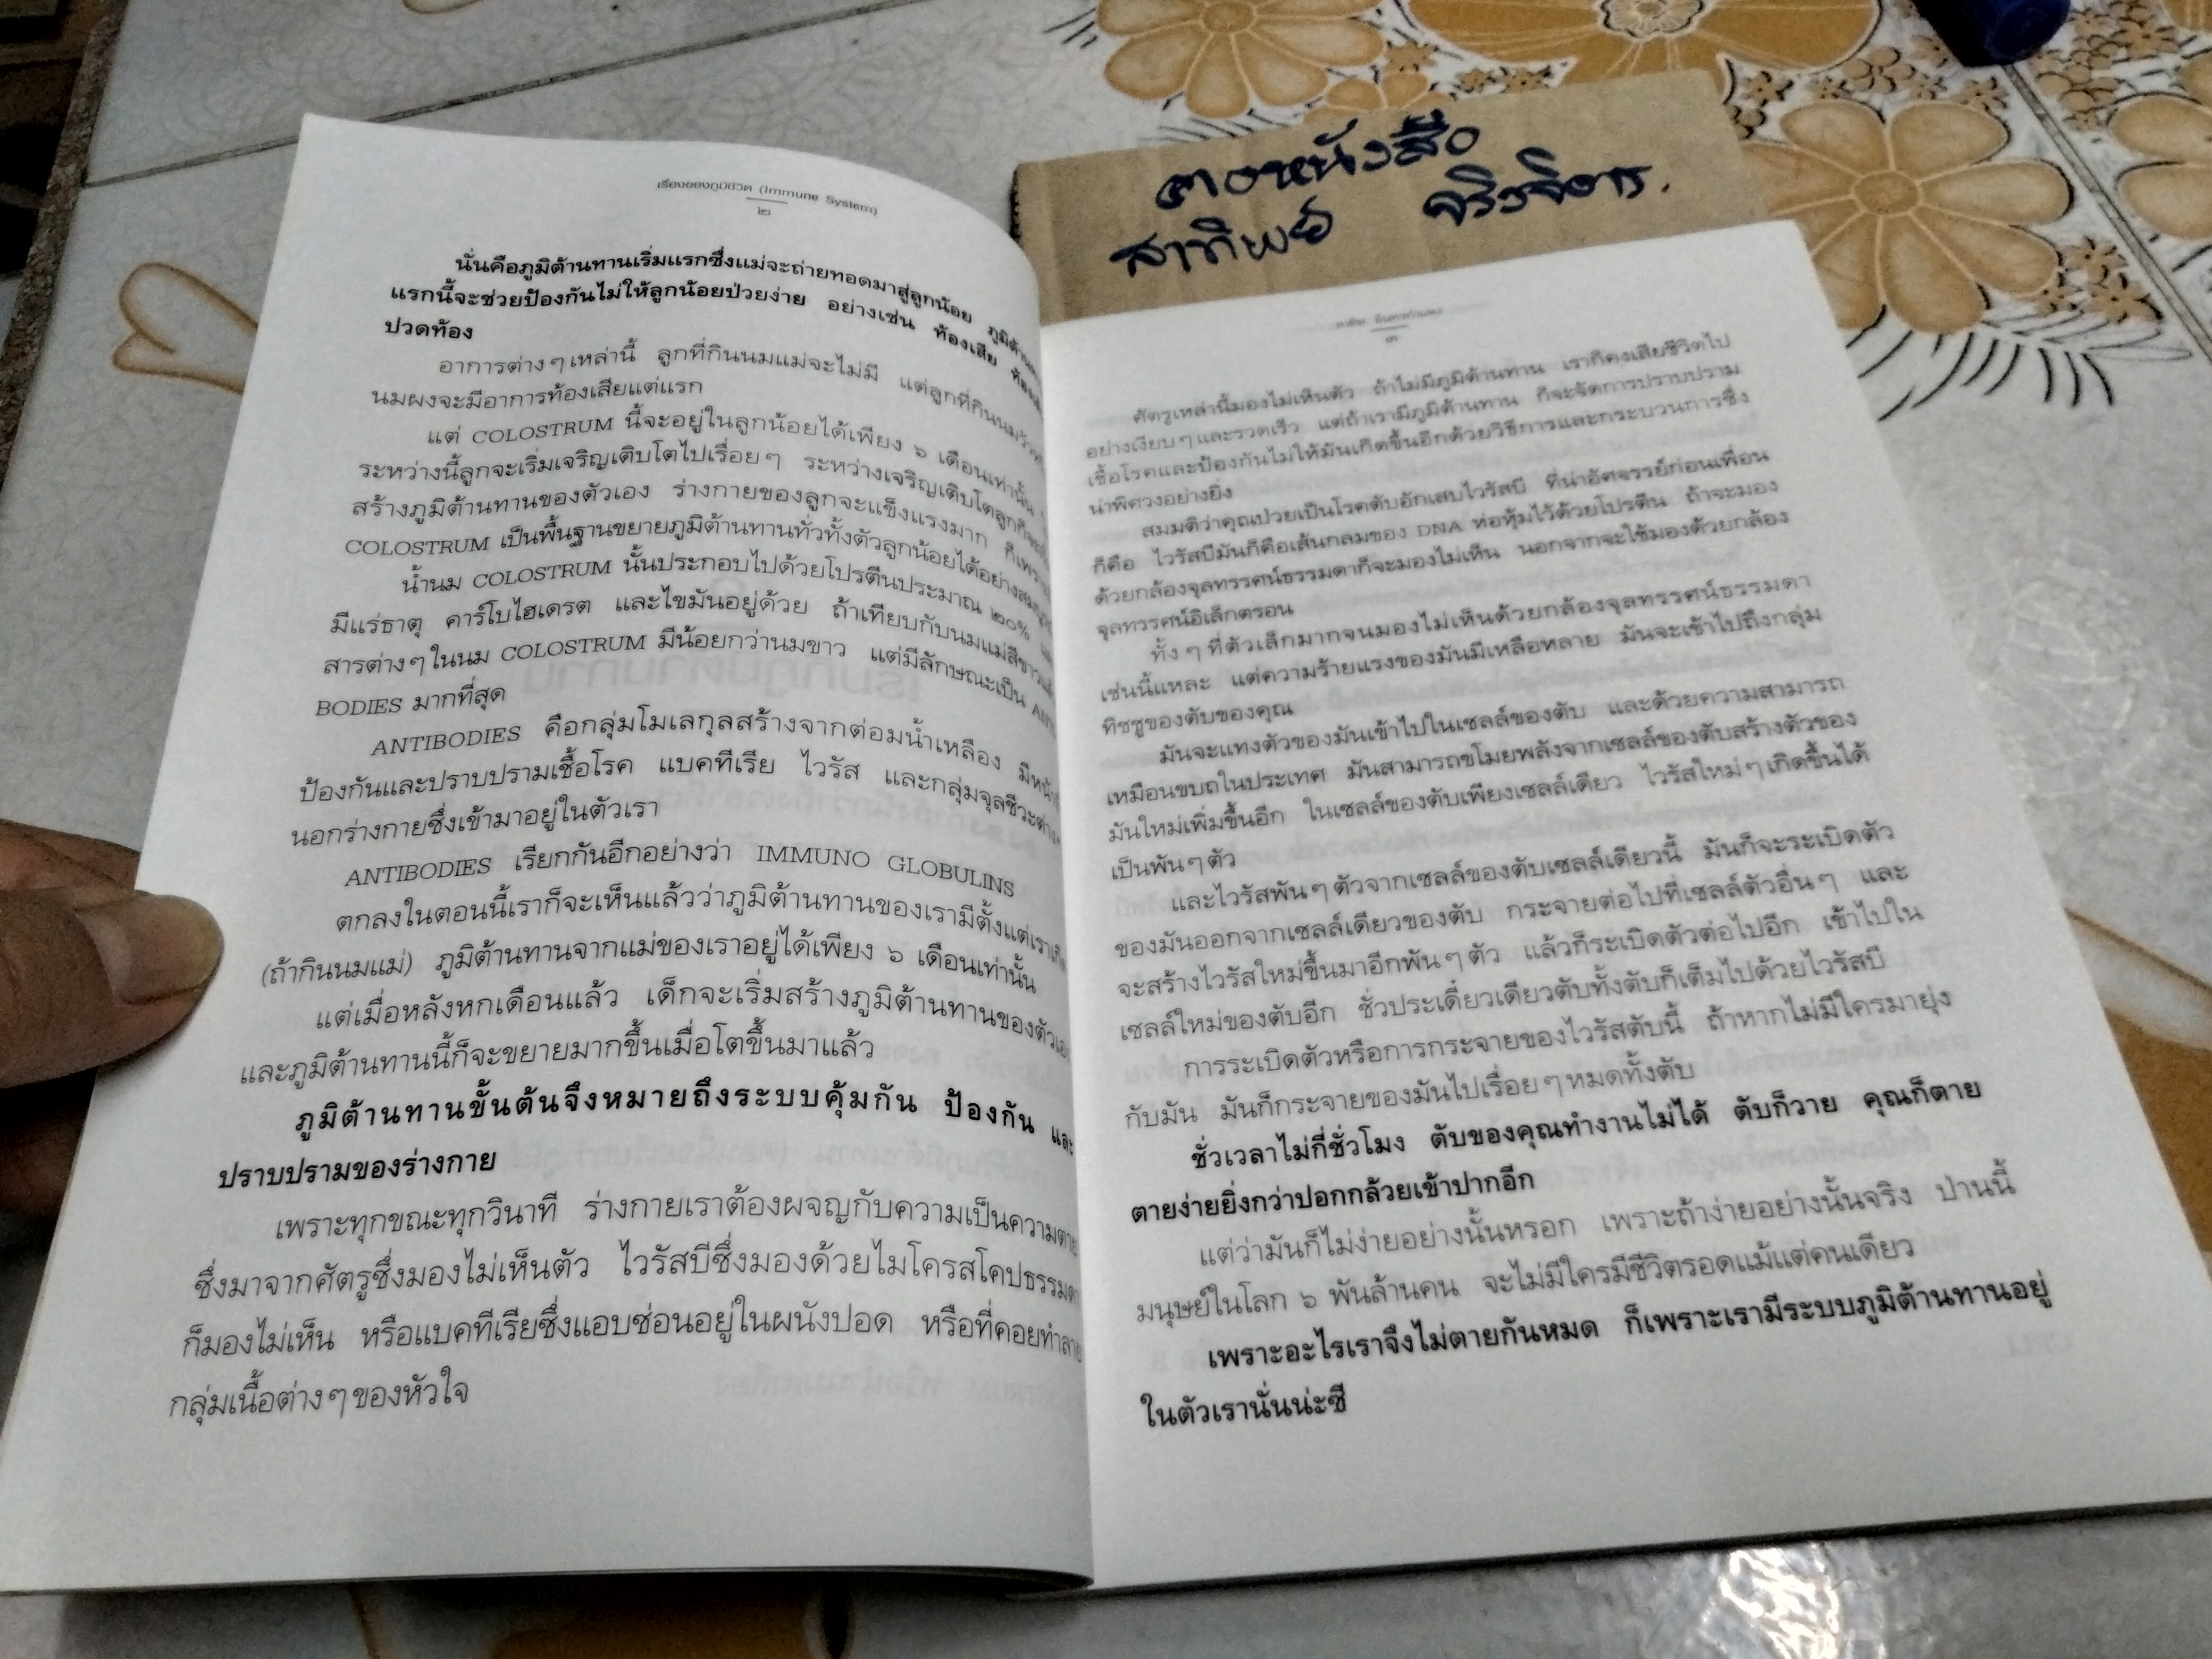 เรื่องของภูมิชีวิต (Immune System)
๒
นั่นคือภูมิต้านทานเริ่มแรกซึ่งแม่จะถ่ายทอดมาสู่ลูกน้อย
แรกนี้จะช่วยป้องกันไม่ให้ลูกน้อยป่วยง่าย อย่างเช่น ท้องเสีย
ปวดท้อง
อาการต่างๆเหล่านี้ ลูกที่กินนมแม่จะไม่มี แต่ลูกที่กินนมวัว
นมผงจะมีอาการท้องเสียแต่แรก
แต่ COLOSTRUM นี้จะอยู่ในลูกน้อยได้เพียง ๖ เดือนเท่านั้น
ระหว่างนี้ลูกจะเริ่มเจริญเติบโตไปเรื่อยๆ ระหว่างเจริญเติบโตลูกก็จะ
สร้างภูมิต้านทานของตัวเอง ร่างกายของลูกจะแข็งแรงมาก ก็เพราะ
COLOSTRUM เป็นพื้นฐานขยายภูมิต้านทานทั่วทั้งตัวลูกน้อยได้อย่าง
น้ำนม COLOSTRUM นั้นประกอบไปด้วยโปรตีนประมาณ ๒๐%
มีแร่ธาตุ คาร์โบไฮเดรต และไขมันอยู่ด้วย ถ้าเทียบกับนมแม่สีขาว
สารต่างๆในนม COLOSTRUM มีน้อยกว่านมขาว แต่มีลักษณะเป็น ANTI
BODIES มากที่สุด
ANTIBODIES คือกลุ่มโมเลกุลสร้างจากต่อมน้ำเหลือง มีหน้าที่
ป้องกันและปราบปรามเชื้อโรค แบคทีเรีย ไวรัส และกลุ่มจุลชีวะต่าง
นอกร่างกายซึ่งเข้ามาอยู่ในตัวเรา
ANTIBODIES เรียกกันอีกอย่างว่า IMMUNO GLOBULINS
ตกลงในตอนนี้เราก็จะเห็นแล้วว่าภูมิต้านทานของเรามีตั้งแต่เราเกิด
(ถ้ากินนมแม่) ภูมิต้านทานจากแม่ของเราอยู่ได้เพียง ๖ เดือนเท่านั้น
แต่เมื่อหลังหกเดือนแล้ว เด็กจะเริ่มสร้างภูมิต้านทานของตัวเอง
และภูมิต้านทานนี้ก็จะขยายมากขึ้นเมื่อโตขึ้นมาแล้ว
ภูมิต้านทานขั้นต้นจึงหมายถึงระบบคุ้มกัน ป้องกัน และ
ปราบปรามของร่างกาย
เพราะทุกขณะทุกวินาที ร่างกายเราต้องผจญกับความเป็นความตาย
ซึ่งมาจากศัตรูซึ่งมองไม่เห็นตัว ไวรัสบีซึ่งมองด้วยไมโครสโคปธรรมดา
ก็มองไม่เห็น หรือแบคทีเรียซึ่งแอบซ่อนอยู่ในผนังปอด หรือที่คอยทำลาย
กลุ่มเนื้อต่างๆของหัวใจ
สาทิพย์ จริงจิตร.
๓
ศัตรูเหล่านี้มองไม่เห็นตัว ถ้าไม่มีภูมิต้านทาน เราก็คงเสียชีวิตไป
อย่างเงียบๆและรวดเร็ว แต่ถ้าเรามีภูมิต้านทาน ก็จะจัดการปราบปราม
เชื้อโรคและป้องกันไม่ให้มันเกิดขึ้นอีกด้วยวิธีการและกระบวนการซึ่ง
น่าพิศวงอย่างยิ่ง
สมมติว่าคุณป่วยเป็นโรคตับอักเสบไวรัสบี ที่น่าอัศจรรย์ก่อนเพื่อน
ก็คือ ไวรัสบีมันก็คือเส้นกลมของ DNA ห่อหุ้มไว้ด้วยโปรตีน ถ้าจะมอง
ด้วยกล้องจุลทรรศน์ธรรมดาก็จะมองไม่เห็น นอกจากจะใช้มองด้วยกล้อง
จุลทรรศน์อิเล็กตรอน
ทั้งๆที่ตัวเล็กมากจนมองไม่เห็นด้วยกล้องจุลทรรศน์ธรรมดา
เช่นนี้แหละ แต่ความร้ายแรงของมันมีเหลือหลาย มันจะเข้าไปถึงกลุ่ม
ทิชชูของตับของคุณ
มันจะแทงตัวของมันเข้าไปในเซลล์ของตับ และด้วยความสามารถ
เหมือนขบถในประเทศ มันสามารถขโมยพลังจากเซลล์ของตับสร้างตัวของ
มันใหม่เพิ่มขึ้นอีก ในเซลล์ของตับเพียงเซลล์เดียว ไวรัสใหม่ๆเกิดขึ้นได้
เป็นพันๆตัว
และไวรัสพันๆตัวจากเซลล์ของตับเซลล์เดียวนี้ มันก็จะระเบิดตัว
ของมันออกจากเซลล์เดียวของตับ กระจายต่อไปที่เซลล์ตัวอื่นๆ และ
จะสร้างไวรัสใหม่ขึ้นมาอีกพันๆตัว แล้วก็ระเบิดตัวต่อไปอีก เข้าไปใน
เซลล์ใหม่ของตับอีก ชั่วประเดี๋ยวเดียวตับทั้งตับก็เต็มไปด้วยไวรัสบี
การระเบิดตัวหรือการกระจายของไวรัสตับนี้ ถ้าหากไม่มีใครมายุ่ง
กับมัน มันก็กระจายของมันไปเรื่อยๆหมดทั้งตับ
ชั่วเวลาไม่กี่ชั่วโมง ตับของคุณทำงานไม่ได้ ตับก็วาย คุณก็ตาย
ตายง่ายยิ่งกว่าปอกกล้วยเข้าปากอีก
แต่ว่ามันก็ไม่ง่ายอย่างนั้นหรอก เพราะถ้าง่ายอย่างนั้นจริง ป่านนี้
มนุษย์ในโลก ๖ พันล้านคน จะไม่มีใครมีชีวิตรอดแม้แต่คนเดียว
เพราะอะไรเราจึงไม่ตายกันหมด ก็เพราะเรามีระบบภูมิต้านทานอยู่
ในตัวเรานั่นน่ะซี